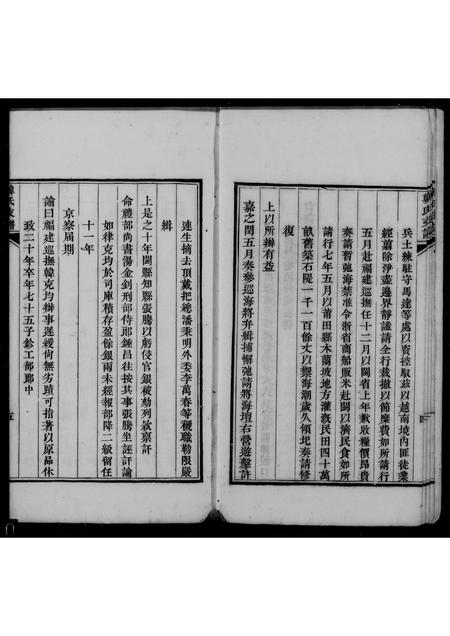 兵土練駐守馬達等處以資控馭茲以越南境內匪徒業
經蕭除淨盡邊界靜謐請全行裁撤以節糜費如所請行
五月赴福建巡撫任十二月以閩省上年歉收糧價昂貴
奏請暫弛海禁准令浙省商船販米赴閩以濟民食如所
請行七年五月以莆田縣木蘭坡地方灌溉民田四十萬
畝舊築石隄一千一百餘丈以禦海潮歲久領圯奏請修
復
上以所辦有益
嘉之閏五月奏參巡海將弁緝捕懈弛請將海壇右營遊擊許
連生摘去頂戴把總潘秉明外委李萬春等褫職勒限嚴
緝
上是之十年閩縣知縣張騰以虧侵官銀被劾列款稟訐
命禮部尚書湯金釗刑部侍郎鍾昌往按其事張騰坐誣訐論
如律克均於司庫積存盈餘銀兩未經報部降二級留任
十一年
京察屆期
諭曰福建巡撫韓克均辦事遲緩尚無劣蹟可指著以原品休
致二十年卒年七十五子鈐工部郎中
韓氏支譜
五